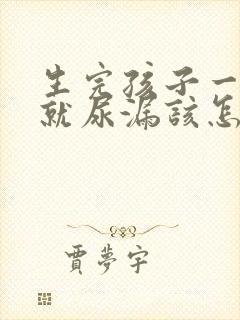 生完孩子一
就尿漏該怎
賈夢宇